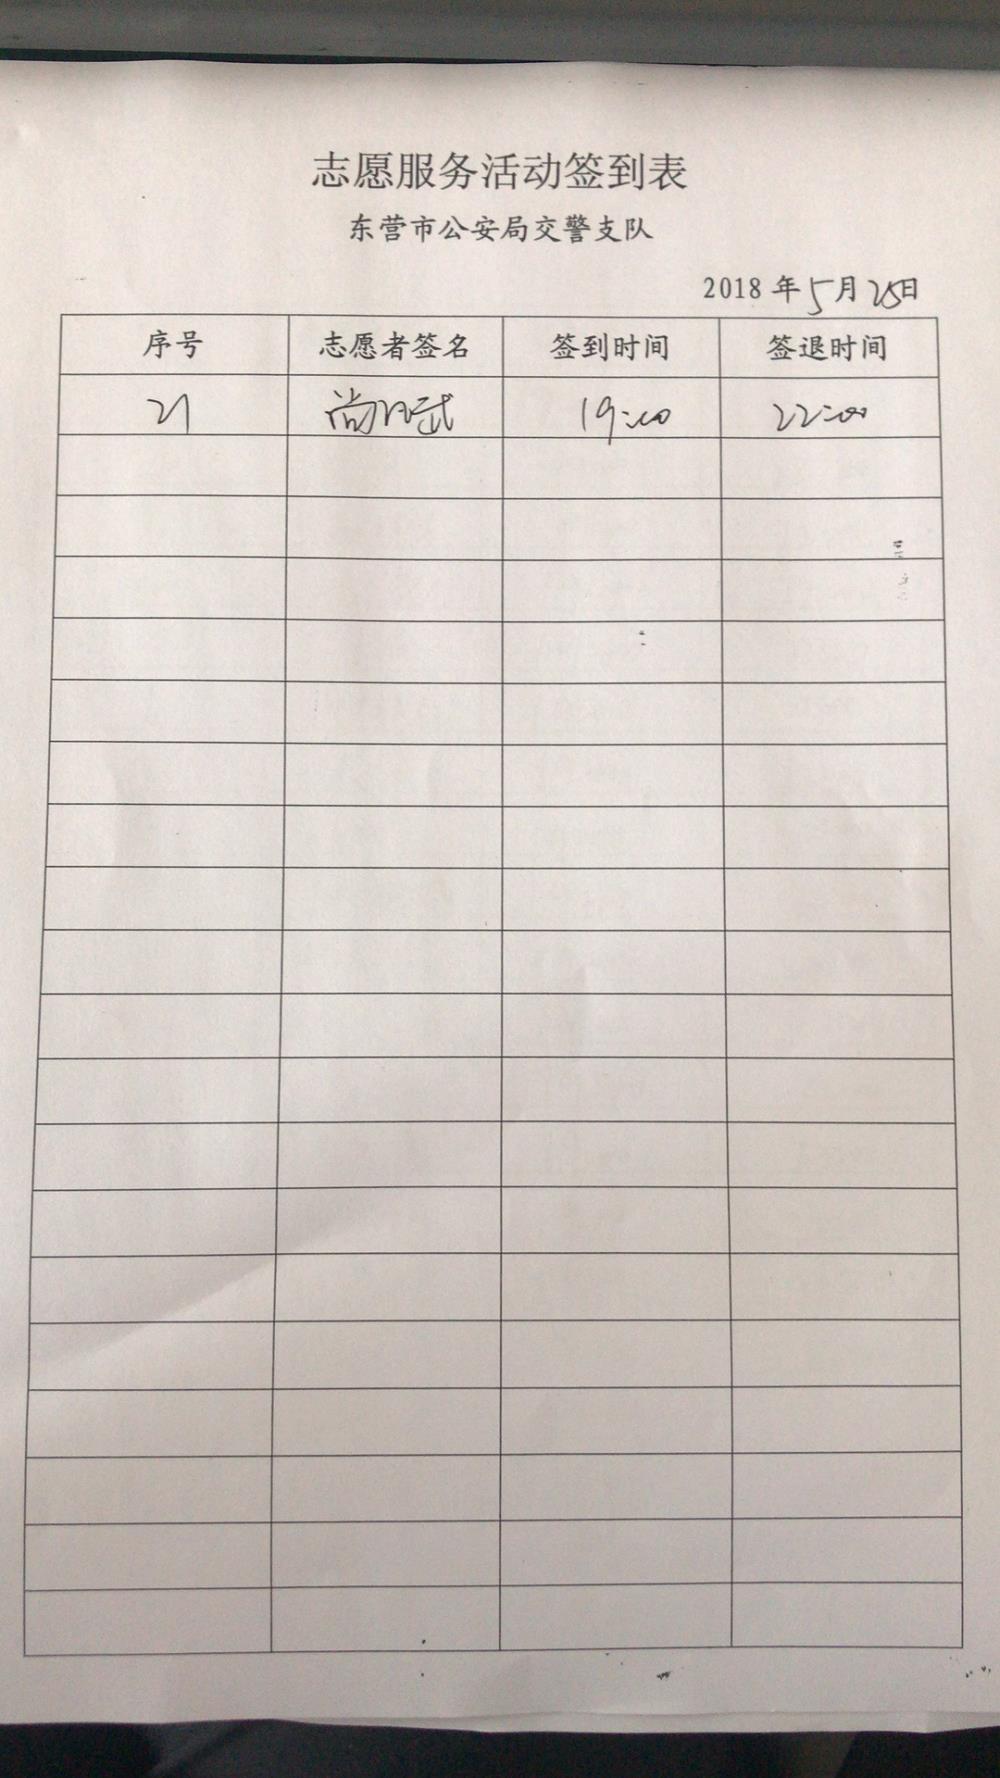 志愿服务活动签到表
东营市公安局交警支队
2018 年 5 月 25 日
序号 志愿者签名 签到时间 签退时间
21 19:00 22:00